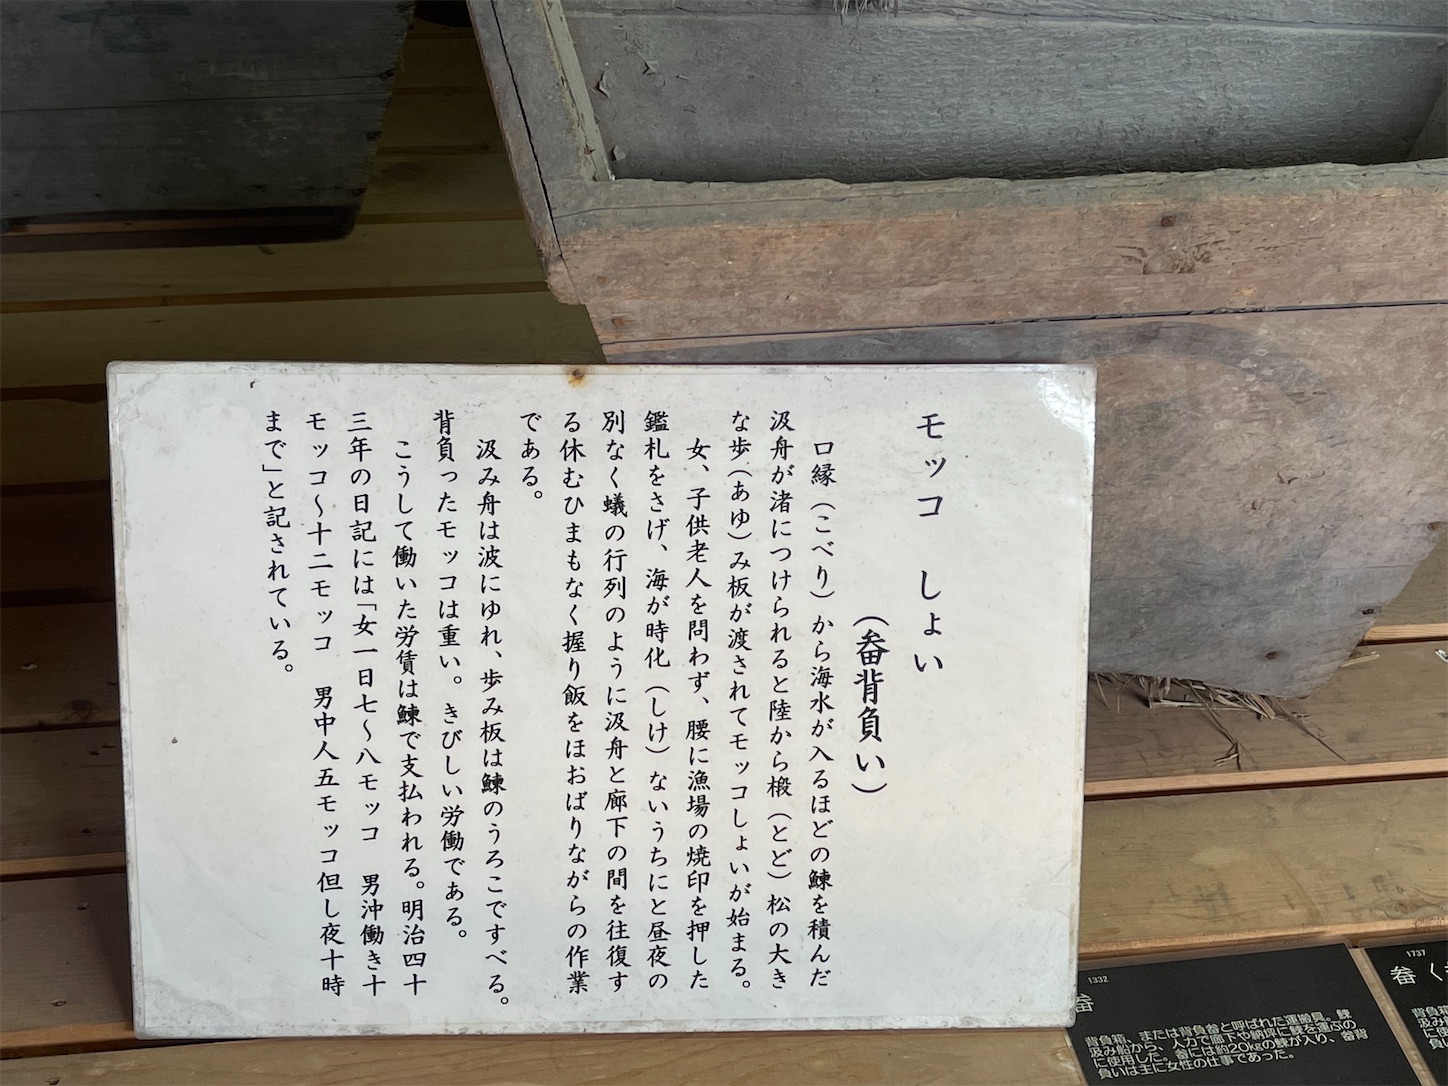 モッコ しょい
(畚背負い)
口縁(こべり)から海水が入るほどの鰊を積んだ
汲舟が渚につけられると陸から椴(とど)松の大き
な歩(あゆ)み板が渡されてモッコしょいが始まる。
女、子供老人を問わず、腰に漁場の焼印を押した
鑑札をさげ、海が時化(しけ)ないうちにと昼夜の
別なく蟻の行列のように汲舟と廊下の間を往復す
る休むひまもなく握り飯をほおばりながらの作業
である。
汲み舟は波にゆれ、歩み板は鰊のうろこですべる。
背負ったモッコは重い。きびしい労働である。
こうして働いた労賃は鰊で支払われる。明治四十
三年の日記には「女一日七〜八モッコ 男沖働き十
モッコ〜十二モッコ 男中人五モッコ但し夜十時
まで」と記されている。
1332
畚
背負箱、または背負畚と呼ばれた運搬具。鰊
汲み船から、人力で廊下や納坪に鰊を運ぶの
に使用した。畚には約20kgの鰊が入り、畚背
負いは主に女性の仕事であった。
1737
畚
背負箱
汲み船
に使用
負い